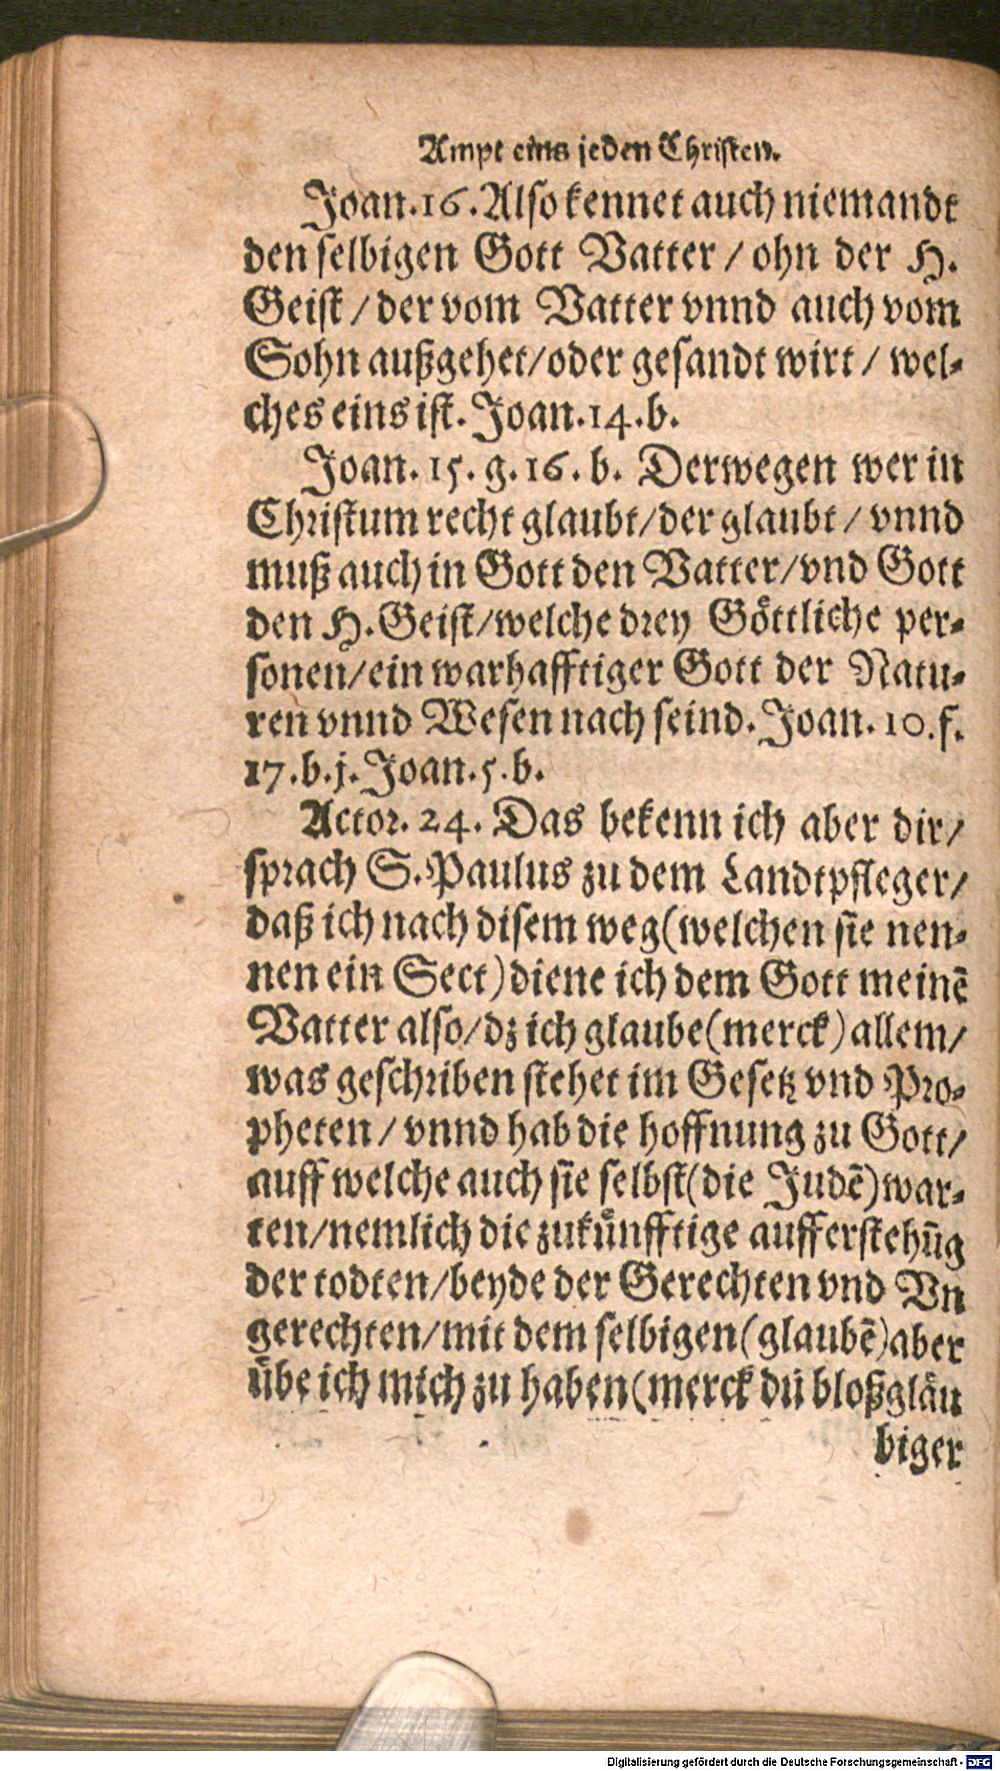 Ampt eins jeden Christen.
Joan.16. Also kennet auch niemandt
den selbigen Gott Vatter / ohn der H.
Geist / der vom Vatter vnnd auch vom
Sohn außgehet/oder gesandt wirt / wel-
ches eins ist. Joan.14.b.
Joan. 15. g. 16. b. Derwegen wer in
Christum recht glaubt/der glaubt / vnnd
muß auch in Gott den Vatter/vnd Gott
den H. Geist/welche drey Göttliche per-
sonen/ein warhafftiger Gott der Natu-
ren vnnd Wesen nach seind. Joan. 10.f.
17.b.j. Joan.5.b.
Actor. 24. Das bekenn ich aber dir/
sprach S. Paulus zu dem Landtpfleger/
daß ich nach disem weg(welchen sie nen-
nen ein Sect) diene ich dem Gott meinē
Vatter also/dz ich glaube(merck) allem/
was geschriben stehet im Gesetz vnd Pro-
pheten / vnnd hab die hoffnung zu Gott/
auff welche auch sie selbst(die Judē)war-
ten/nemlich die zukünfftige aufferstehūg
der todten/beyde der Gerechten vnd Vn
gerechten/mit dem selbigen(glaubē)aber
übe ich mich zu haben(merck du bloßgläu
biger
Digitalisierung gefördert durch die Deutsche Forschungsgemeinschaft - DFG